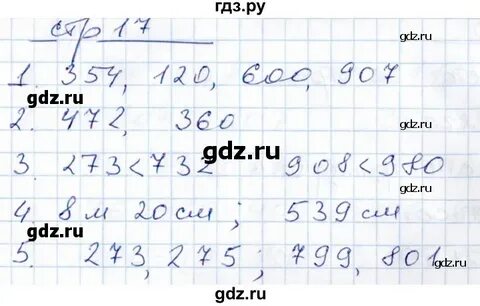 гдз.ру
стр 17
1. 354, 120, 600, 907
гдз.ру gdz.ru
2. 472, 360
gdz.ru
3. 273<732 908<980
gdz.ru gdz.ru
4. 8 м 20 см ; 539 см
gdz.ru
5. 273, 275 ; 799, 801
gdz.ru gdz.ru